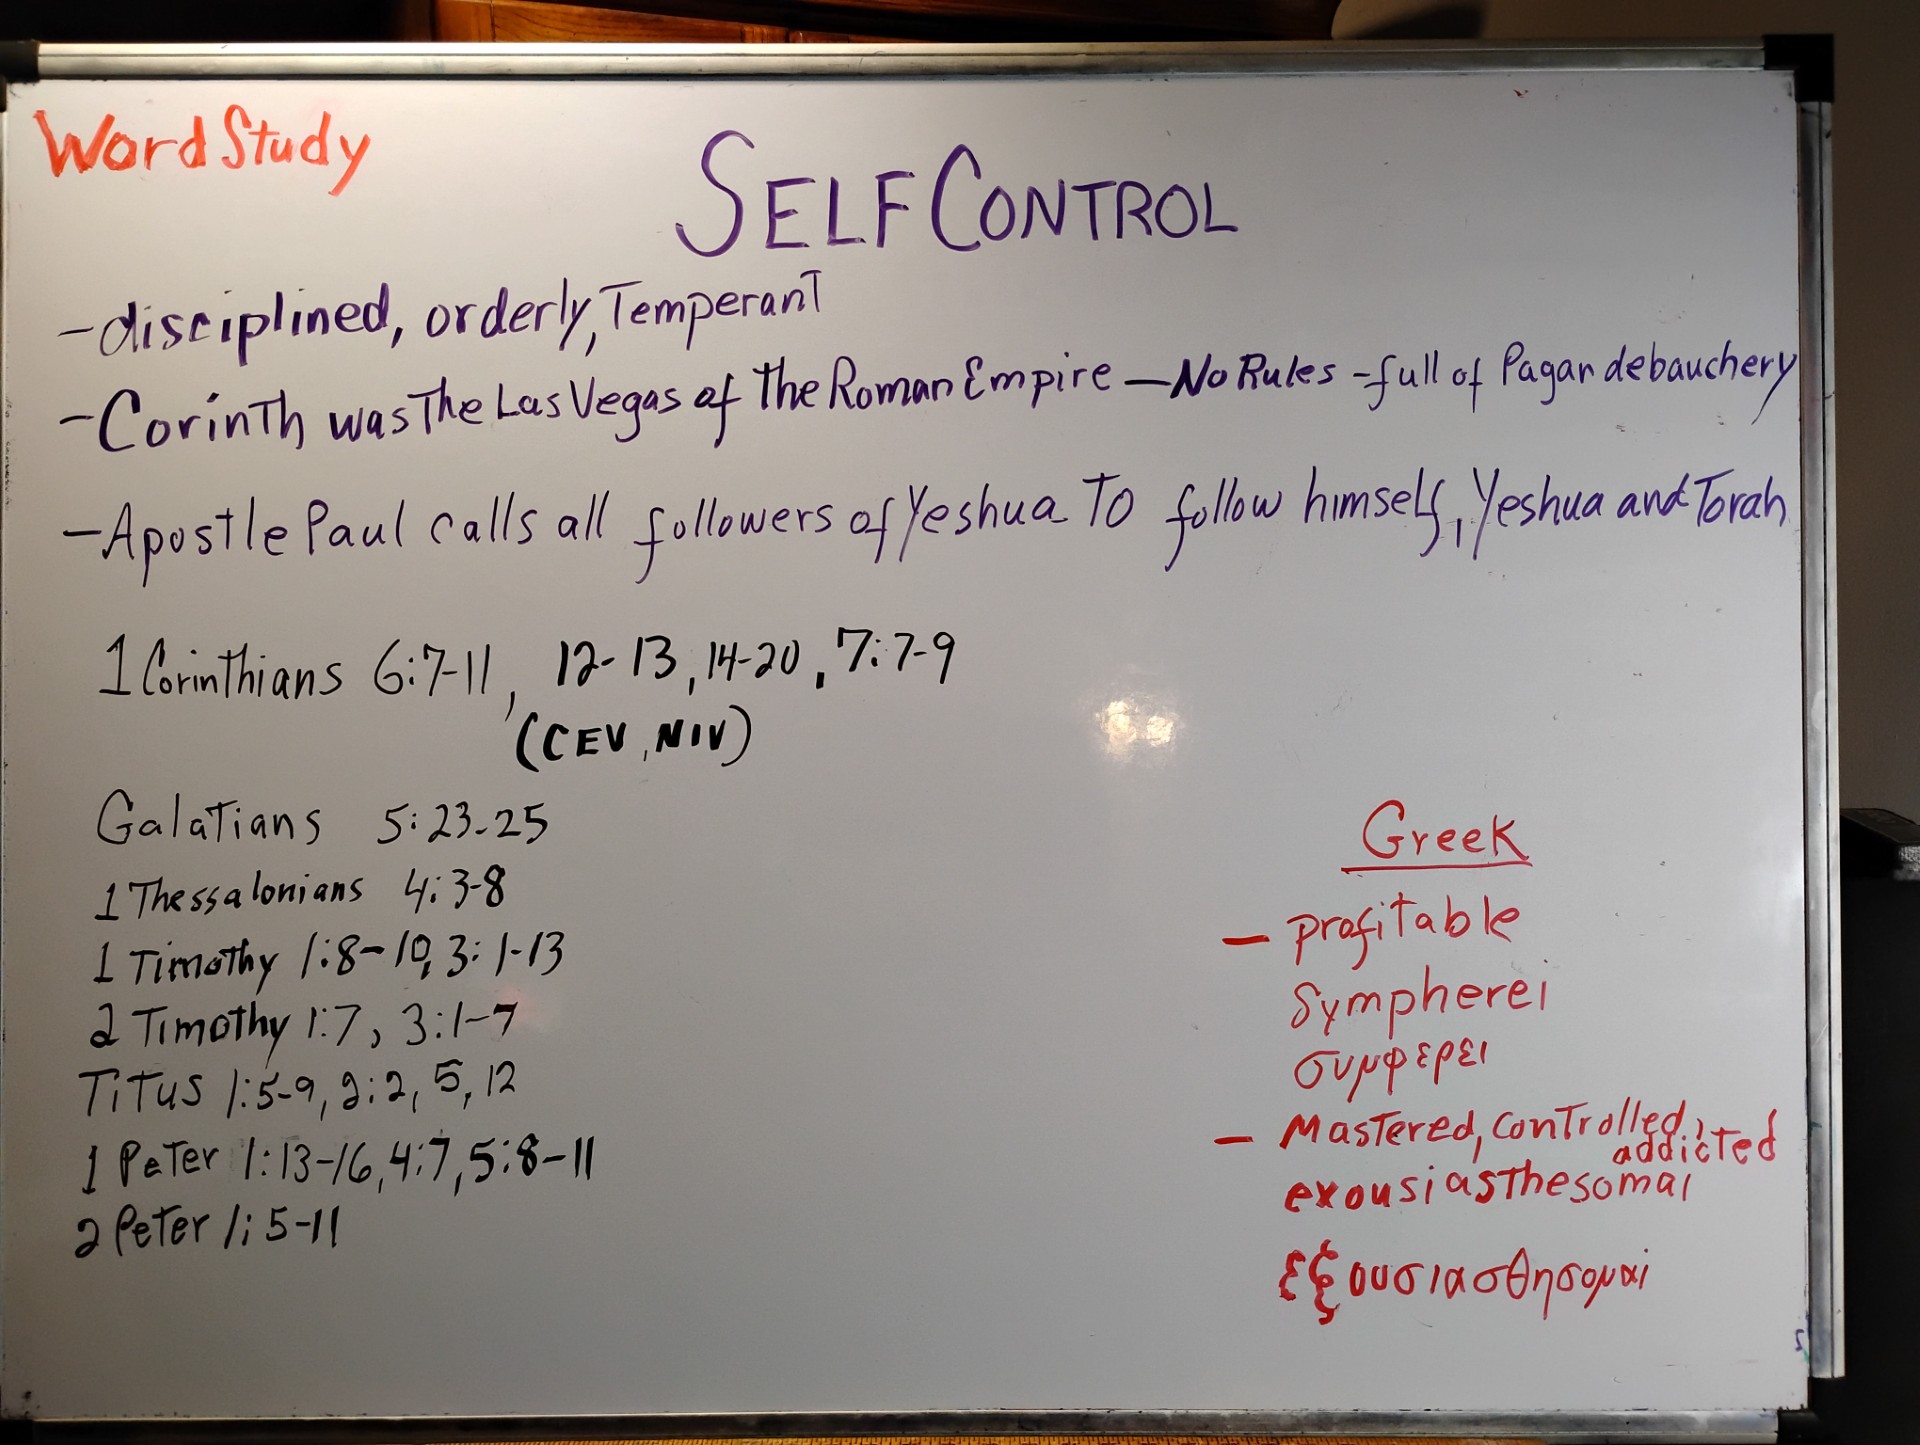 Word Study
SELF CONTROL
- disciplined, orderly, Temperant
- Corinth was The Las Vegas of the Roman Empire — No Rules - full of Pagan debauchery
- Apostle Paul calls all followers of Yeshua To follow himself, Yeshua and Torah
1 Corinthians 6:7-11, 12-13, 14-20, 7:7-9
(CEV, NIV)
Galatians 5:23-25
1 Thessalonians 4:3-8
1 Timothy 1:8-10, 3:1-13
2 Timothy 1:7, 3:1-7
Titus 1:5-9, 2:2, 5, 12
1 Peter 1:13-16, 4:7, 5:8-11
2 Peter 1:5-11
Greek
- profitable
Sympherei
συμφερει
- Mastered, controlled, addicted
exousiasthesomai
εξουσιασθησομαι